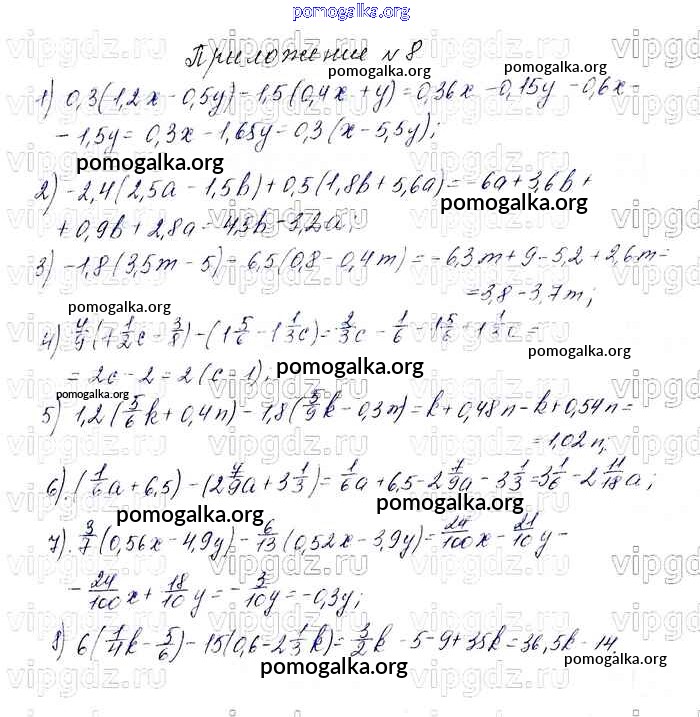 pomogalka.org
Приложение №8
pomogalka.org pomogalka.org
1) 0,3(1,2x - 0,5y) - 1,5(0,4x + y) = 0,36x - 0,15y - 0,6x -
- 1,5y = 0,3x - 1,65y = 0,3(x - 5,5y);
pomogalka.org pomogalka.org
2) -2,4(2,5a - 1,5b) + 0,5(1,8b + 5,6a) = -6a + 3,6b +
pomogalka.org
+ 0,9b + 2,8a = 4,5b - 3,2a;
3) -1,8(3,5m - 5) - 6,5(0,8 - 0,4m) = -6,3m + 9 - 5,2 + 2,6m =
= 3,8 - 3,7m;
pomogalka.org
4) 4/9(1 1/2c - 3/8) - (1 5/6 - 1 1/3c) = 2/3c - 1/6 - 1 5/6 + 1 1/3c =
pomogalka.org
= 2c - 2 = 2(c - 1);
pomogalka.org pomogalka.org pomogalka.org
5) 1,2(5/6k + 0,4n) - 1,8(5/9k - 0,3n) = k + 0,48n - k + 0,54n =
= 1,02n;
6) (1/6a + 6,5) - (2 7/9a + 3 1/3) = 1/6a + 6,5 - 2 7/9a - 3 1/3 = 3 1/6 - 2 11/18a;
pomogalka.org pomogalka.org
7) 3/7(0,56x - 4,9y) - 6/13(0,52x - 3,9y) = 24/100x - 21/10y -
- 24/100x + 18/10y = -3/10y = -0,3y;
pomogalka.org
8) 6(1/4k - 5/6) - 15(0,6 - 2 1/3k) = 3/2k - 5 - 9 + 35k = 36,5k - 14.
pomogalka.org pomogalka.org